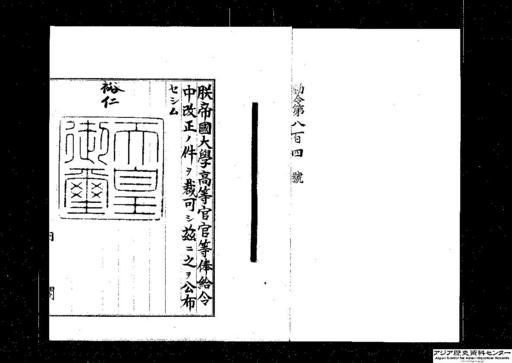 勅令第八百四號
朕帝國大學高等官官等俸給令
中改正ノ件ヲ裁可シ茲ニ之ヲ公布
セシム
裕仁
天皇
御璽
内閣
アジア歴史資料センター
Japan Center for Asian Historical Records